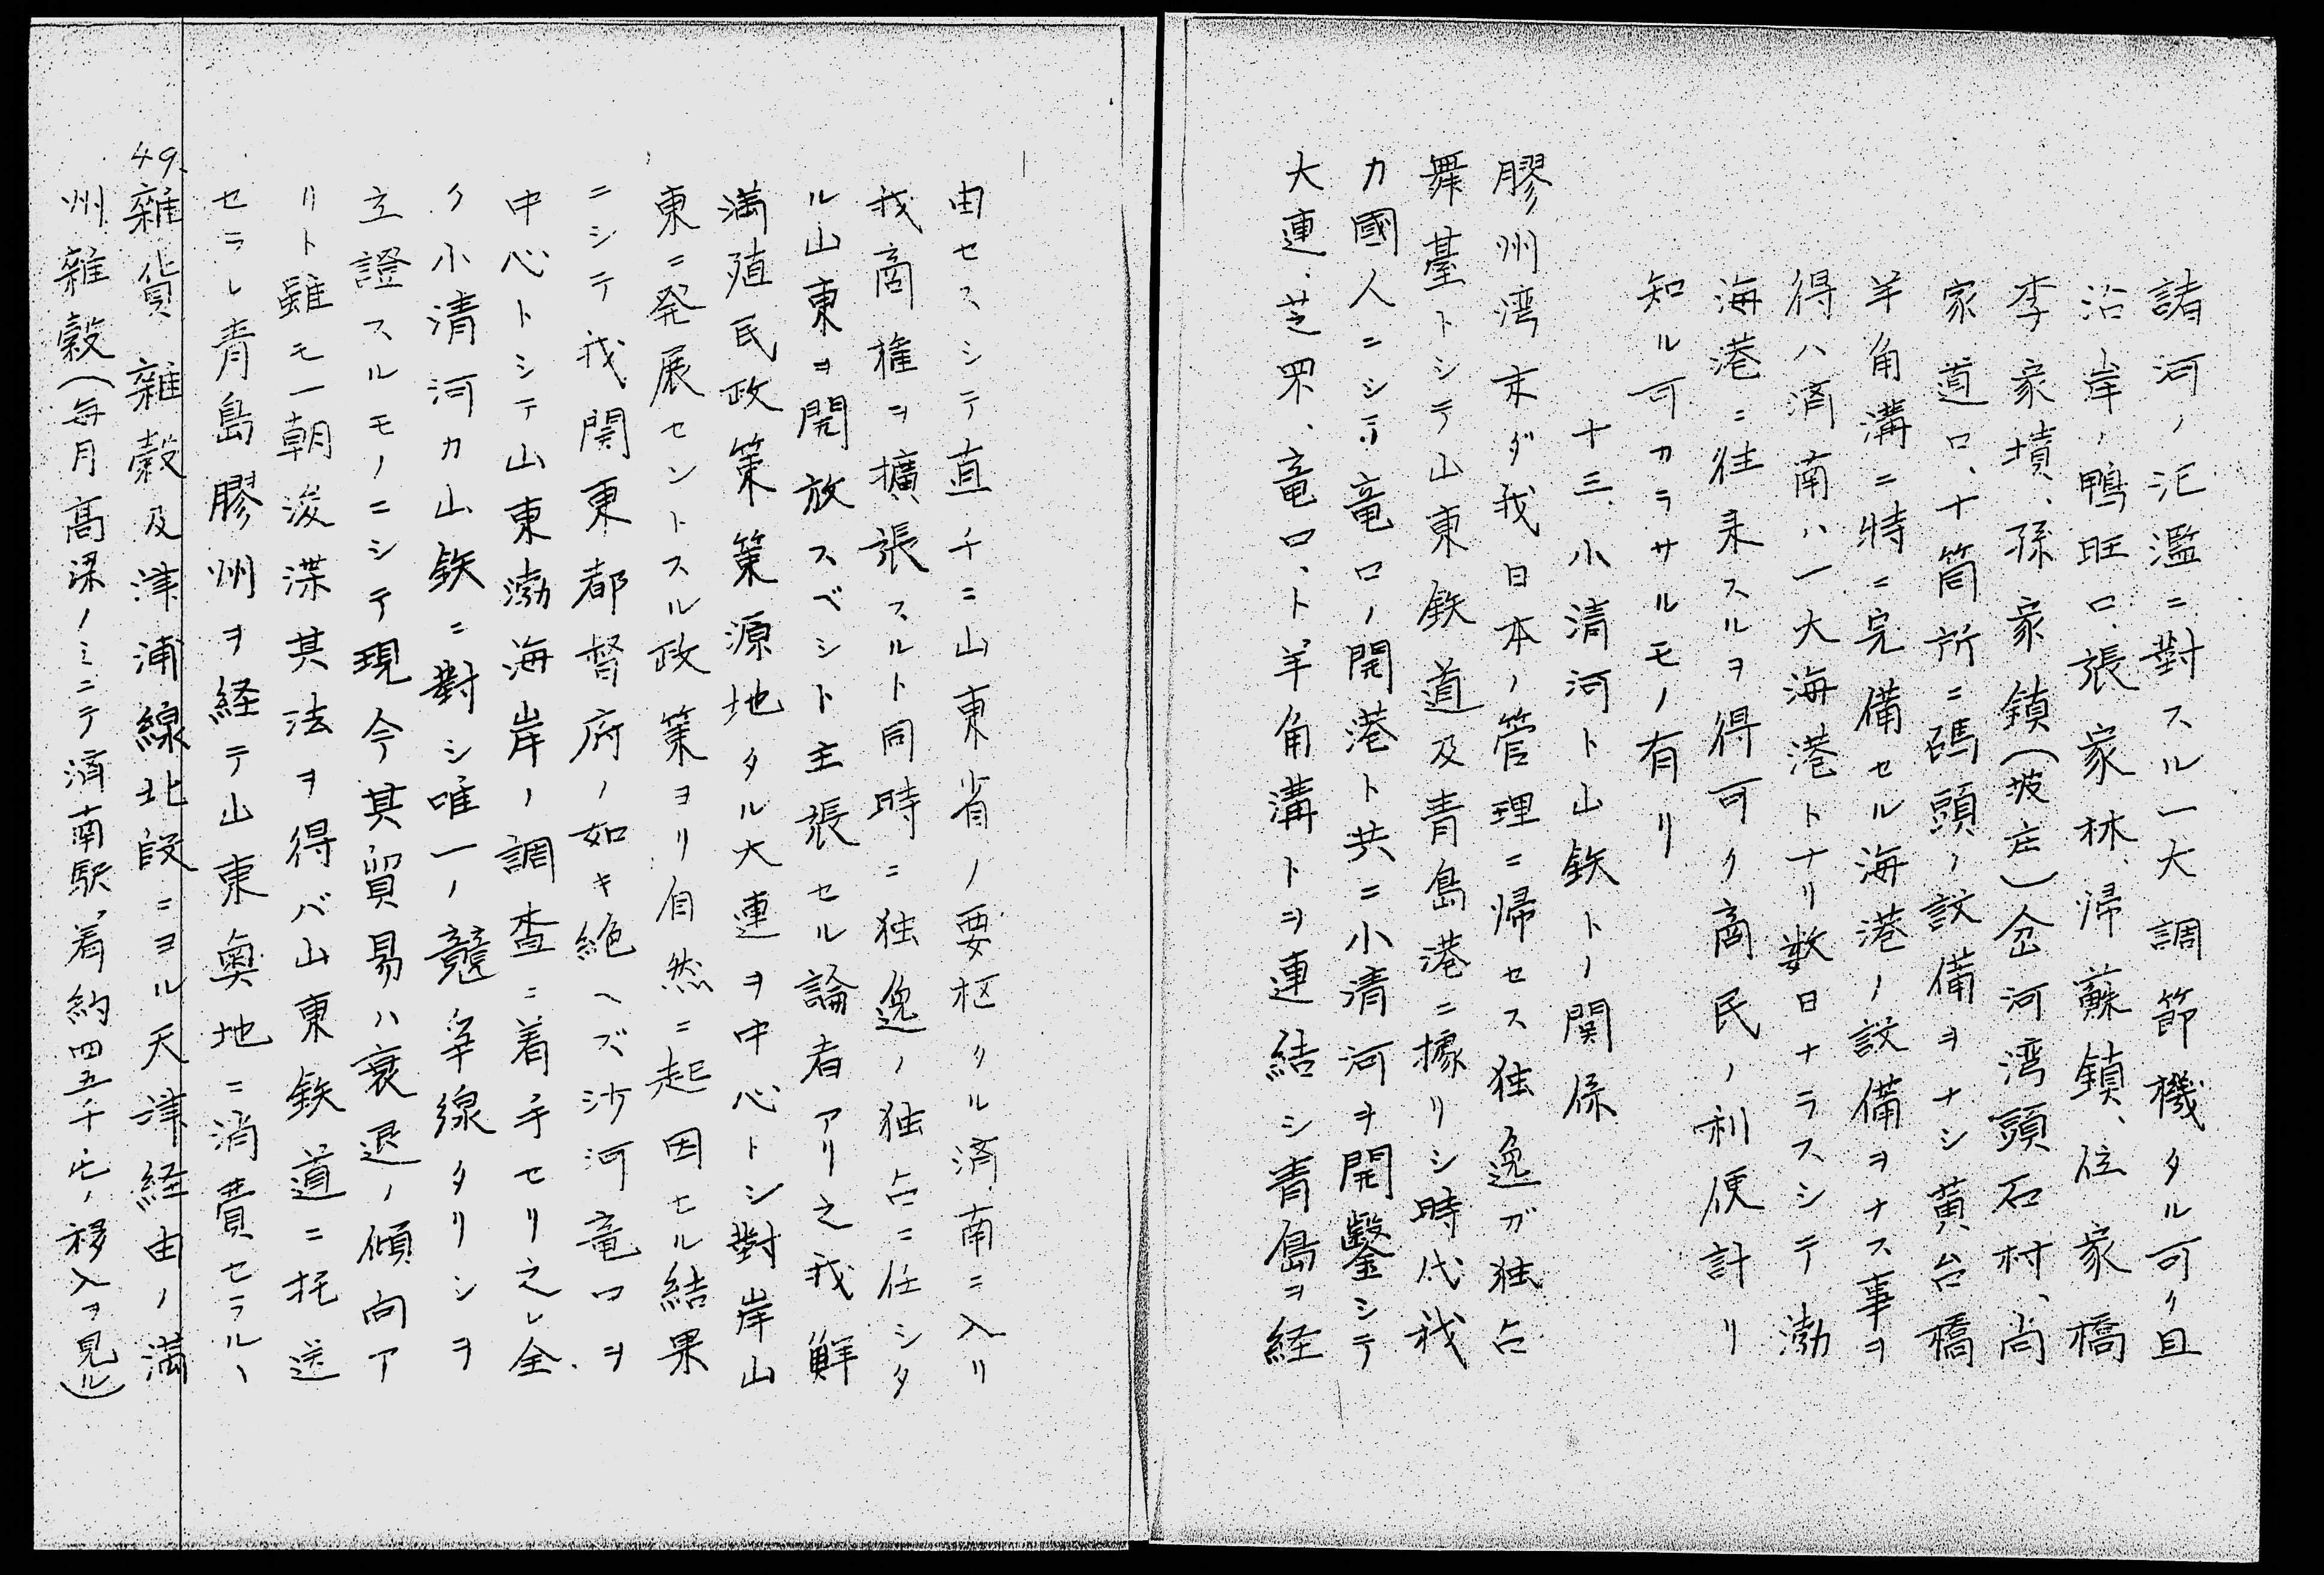 諸河ノ汜濫ニ對スル一大調節機タル可ク且
沿岸ノ鴨旺口、張家林、帰蘇鎮、位家橋
李家墳、孫家鎮(坡庄)岔河湾頭石村、尚
家道口、十箇所ニ碼頭ノ設備ヲナシ黄台橋
羊角溝ニ特ニ完備セル海港ノ設備ヲナス事ヲ
得ハ済南ハ一大海港トナリ数日ナラスシテ渤
海港ニ往来スルヲ得可ク商民ノ利便計リ
知ル可カラサルモノ有リ
十三、小清河ト山鉄トノ関係
膠州湾末ダ我日本ノ管理ニ帰セス独逸ガ独占
舞臺トシテ山東鉄道及青島港ニ據リシ時代我
カ國人ニシテ竜口ノ開港ト共ニ小清河ヲ開鑿シテ
大連、芝罘、竜口、ト羊角溝トヲ連結シ青島ヲ経
由セスシテ直チニ山東省ノ要枢タル済南ニ入リ
我商権ヲ擴張スルト同時ニ独逸ノ独占ニ任シタ
ル山東ヲ開放スベシト主張セル論者アリ之我鮮
満殖民政策策源地タル大連ヲ中心トシ對岸山
東ニ発展セントスル政策ヨリ自然ニ起因セル結果
ニシテ我関東都督府ノ如キ絶ヘズ沙河竜口ヲ
中心トシテ山東渤海岸ノ調査ニ着手セリ之レ全
ク小清河カ山鉄ニ對シ唯一ノ競争線タリシヲ
立證スルモノニシテ現今其貿易ハ衰退ノ傾向ア
リト雖モ一朝浚渫其法ヲ得バ山東鉄道ニ托送
セラレ青島膠州ヲ経テ山東奥地ニ消費セラルヽ
49.雜貨 雜穀及津浦線北段ニヨル天津経由ノ満
州雜穀(毎月高梁ノミニテ済南駅着約四五千屯ノ移入ヲ見ル)